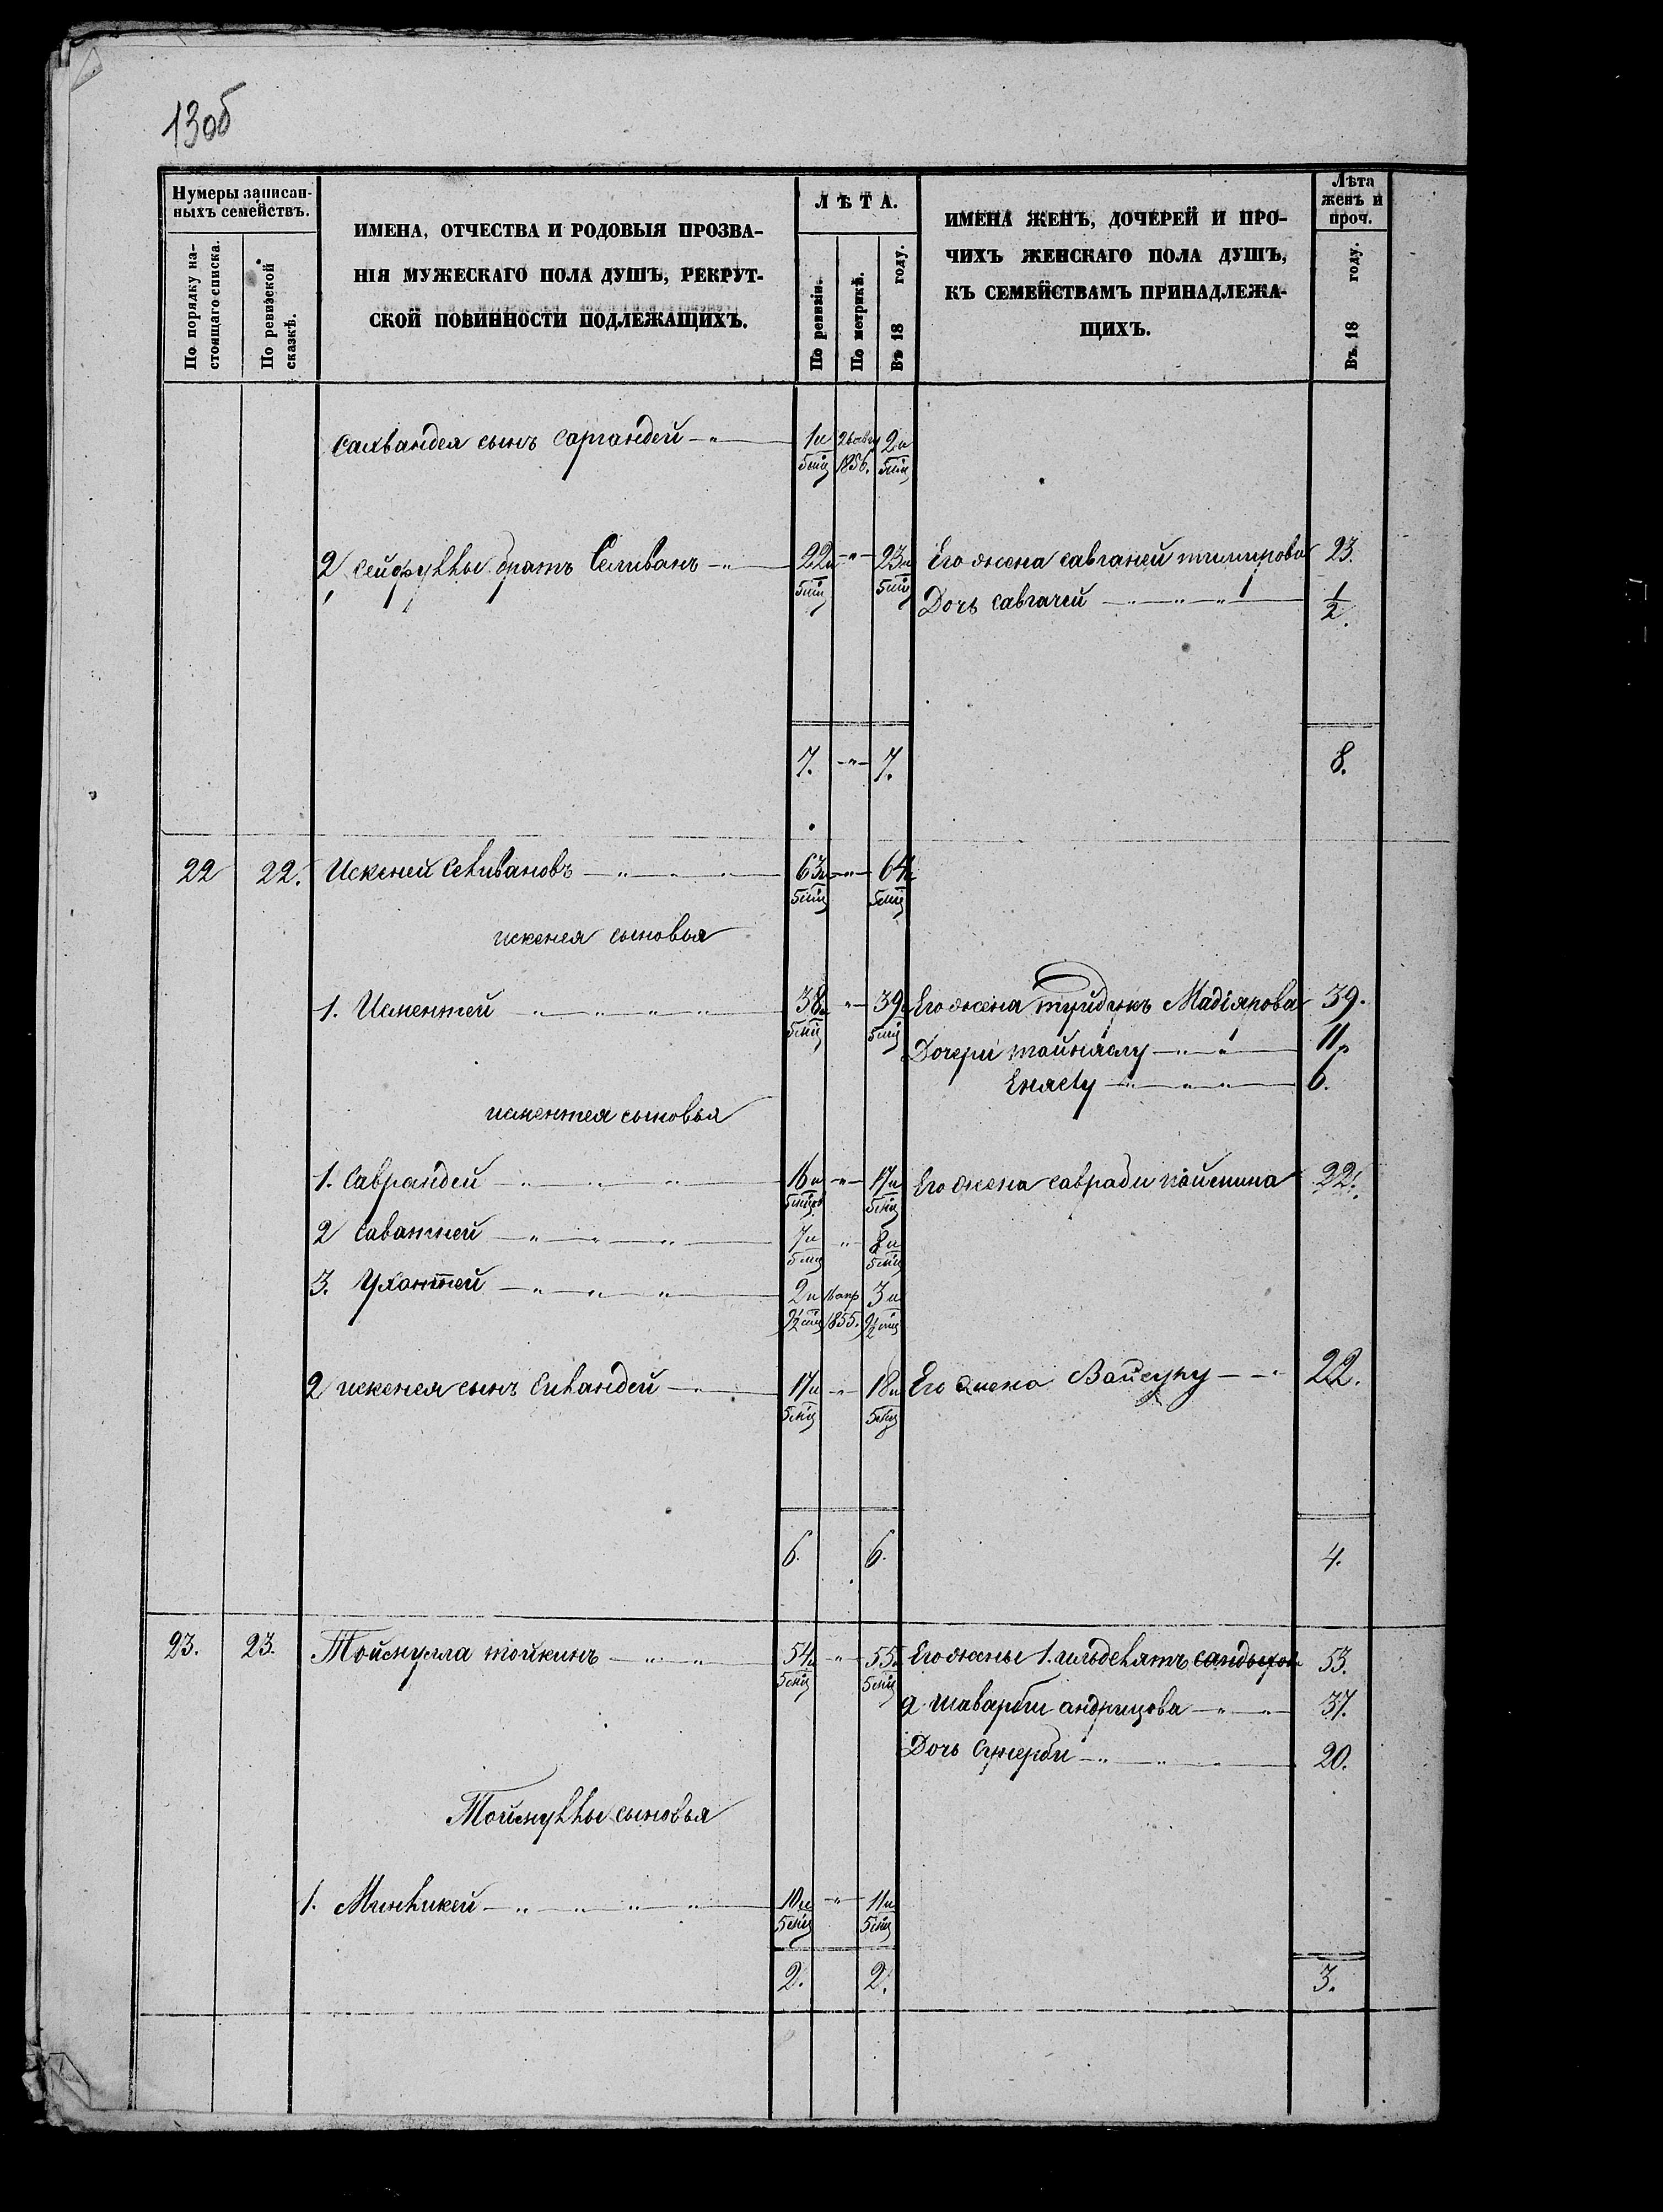 13об
Нумеры записан-
ныхъ семействъ.
По порядку на-
стоящаго списка.
По ревизской
сказкѣ.
ИМЕНА, ОТЧЕСТВА И РОДОВЫЯ ПРОЗВА-
НІЯ МУЖЕСКАГО ПОЛА ДУШЪ, РЕКРУТ-
СКОЙ ПОВИННОСТИ ПОДЛЕЖАЩИХЪ.
ЛѢТА.
По ревизіи.
По метрикѣ.
Въ 18 году.
ИМЕНА ЖЕНЪ, ДОЧЕРЕЙ И ПРО-
ЧИХЪ ЖЕНСКАГО ПОЛА ДУШЪ,
КЪ СЕМЕЙСТВАМЪ ПРИНАДЛЕЖА-
ЩИХЪ.
Лѣта
женъ и
проч.
Въ 18 году.
сынъ саргандей 1 и 5 мц 1856. 2 и 5 мц
2 сейфуллы братъ Селиванъ 22 и 5 мц 23 и 5 мц Его жена 23.
Дочь савгачей 1/2.
7. 7. 8.
22 22. Искеней Селивановъ 63 и 5 мц 64 и 5 мц
искенея сыновья
1. Исментей 38 и 5 мц 39 и 5 мц Его жена Мадіярова 39.
Дочери тайняслу 11.
Еняслу 6.
исментея сыновья
1. Саврандей 16 и 5 мц 17 и 5 мц Его жена савради 22.
2 саватней 7 и 5 мц 8 и 5 мц
3. Ухантей 2 и 9 1/2 мц 16 апр 1855. 3 и 9 1/2 мц
2 искенея сынъ Силандей 17 и 5 мц 18 и 5 мц Его жена Вайсупу 22.
6. 6. 4.
23. 23. Тоймулла тойкинъ 54 и 5 мц 55 и 5 мц Его жены 1. гильделятъ 53.
2 шаварби 37.
Дочь 20.
Тоймуллы сыновья
1. Минликей 10 и 5 мц 11 и 5 мц
2. 2. 3.